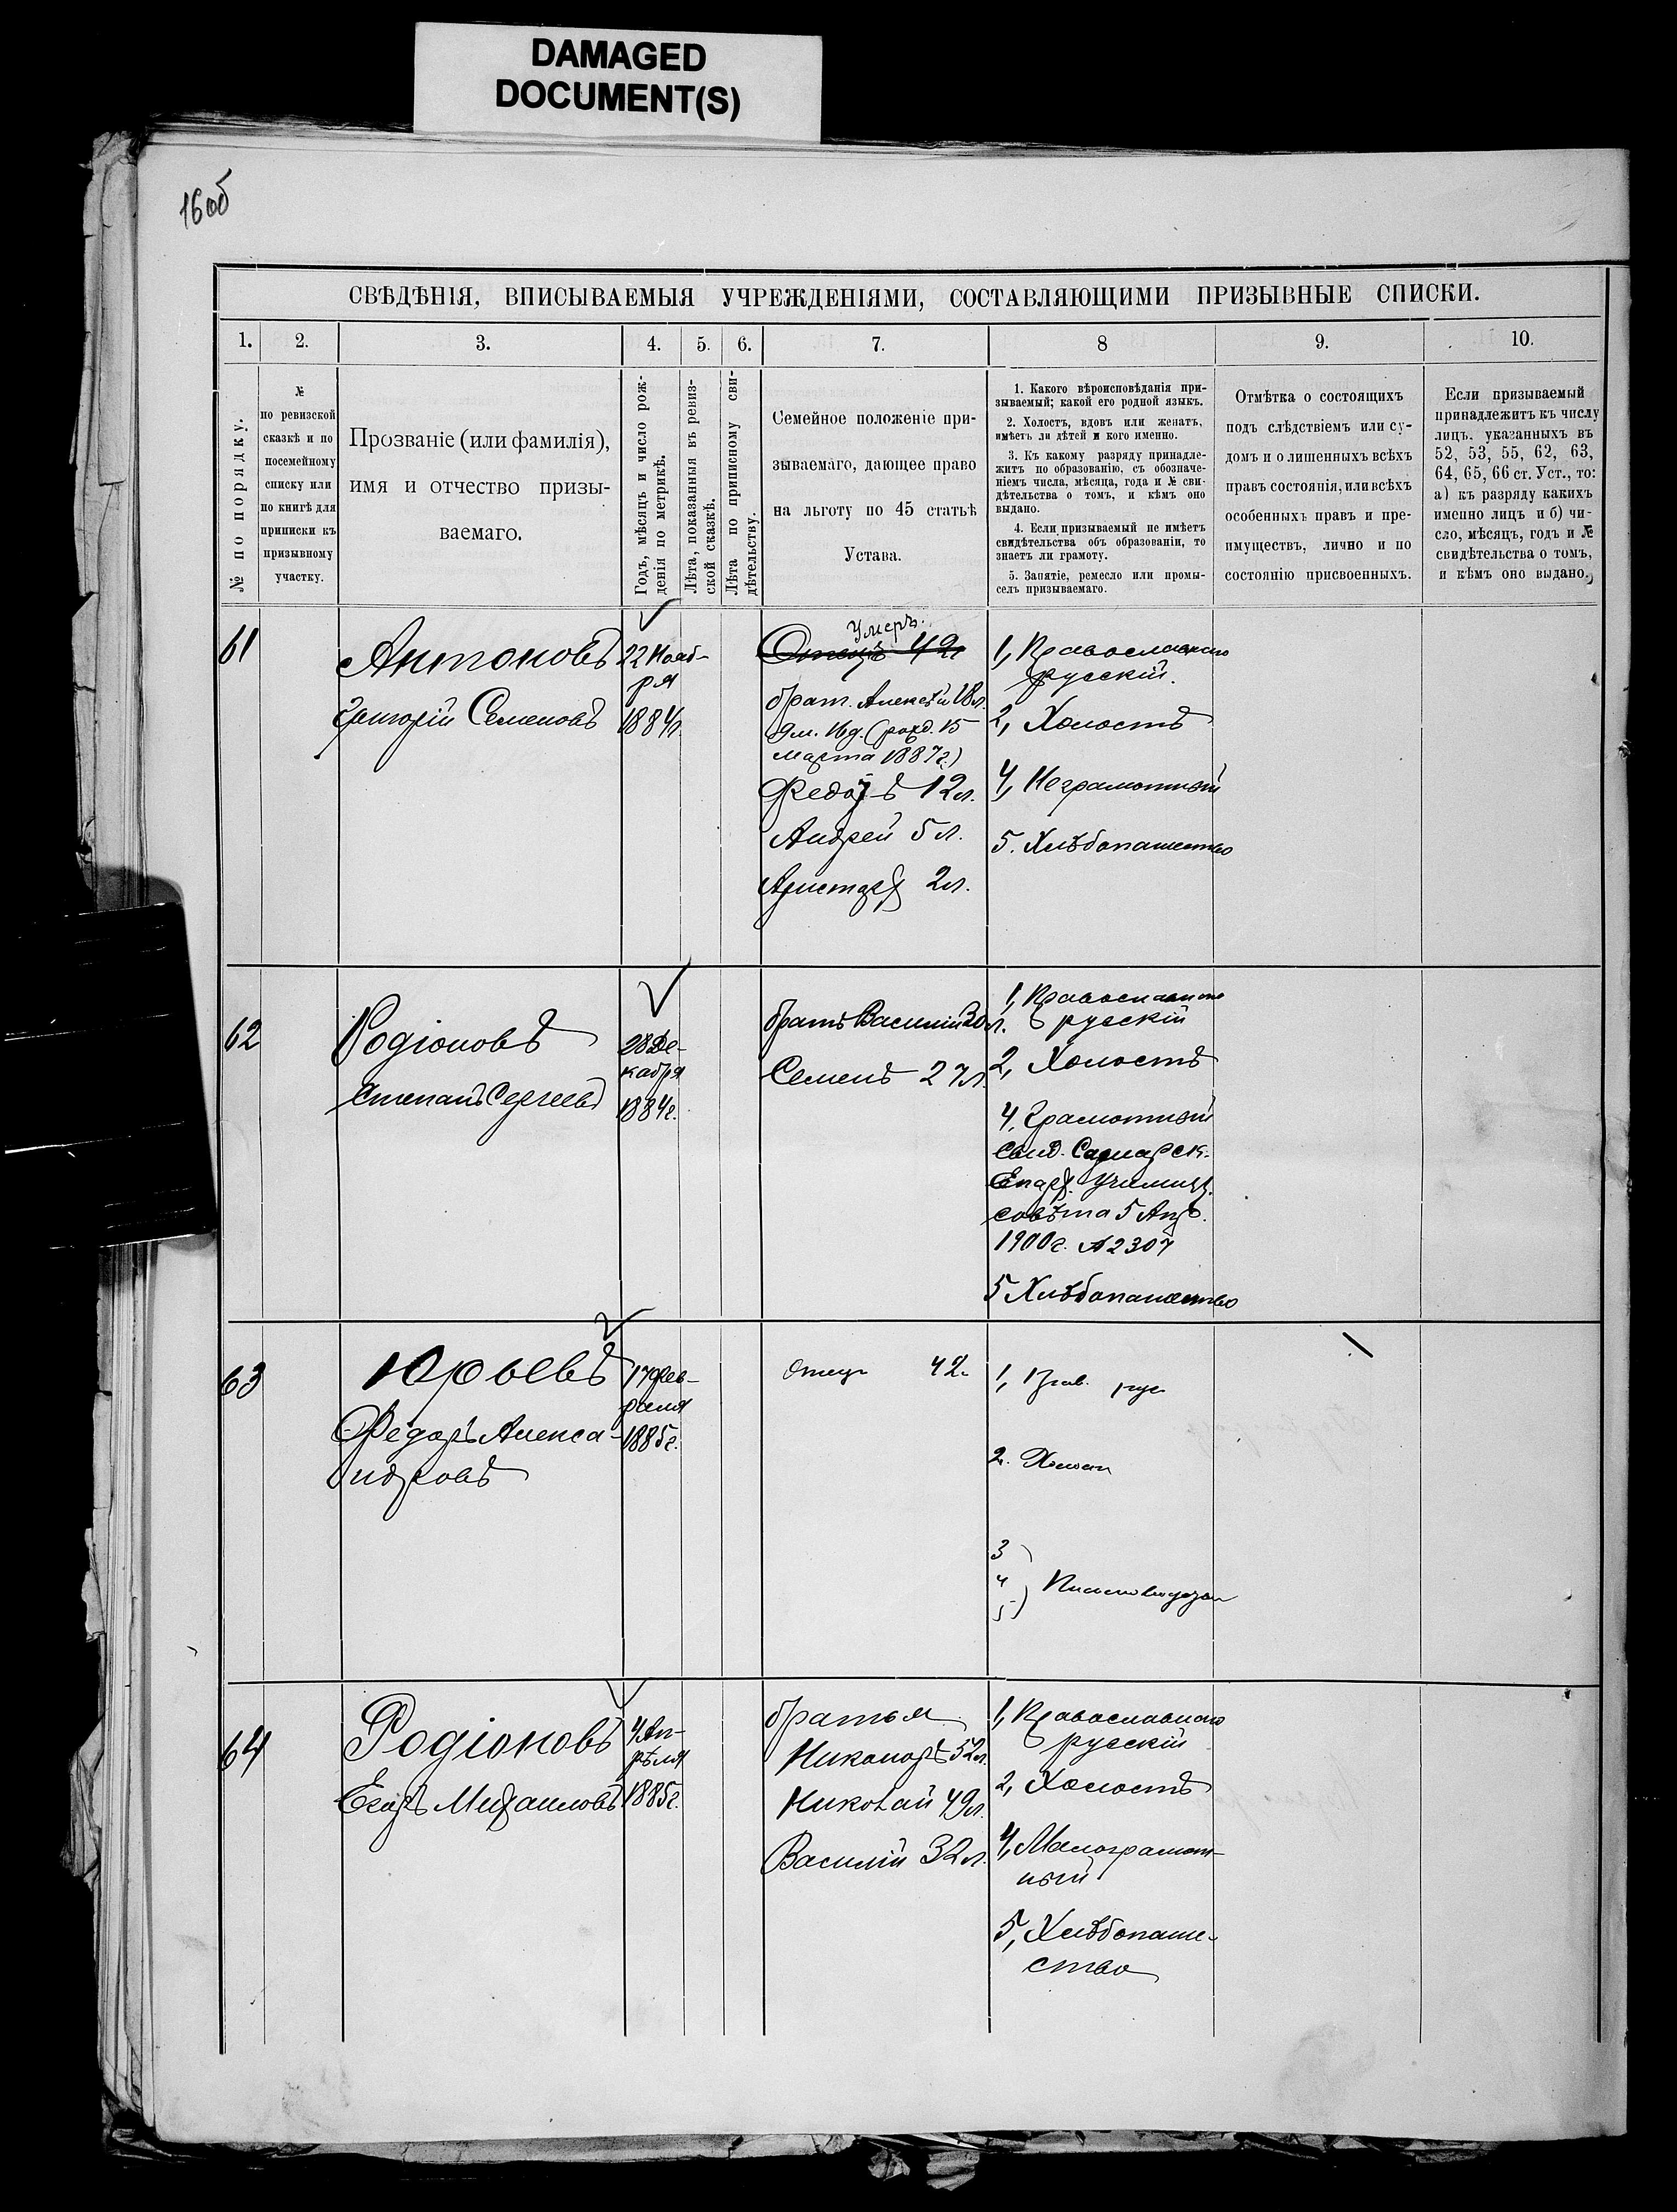 DAMAGED
DOCUMENT(S)
16 об
СВѢДѢНІЯ, ВПИСЫВАЕМЫЯ УЧРЕЖДЕНІЯМИ, СОСТАВЛЯЮЩИМИ ПРИЗЫВНЫЕ СПИСКИ.
1. 2. 3. 4. 5. 6. 7. 8 9. 10.
№ по порядку.
№
по ревизской
сказкѣ и по
посемейному
списку или
по книгѣ для
приписки къ
призывному
участку.
Прозваніе (или фамилія),
имя и отчество призы-
ваемаго.
Годъ, мѣсяцъ и число рож-
денія по метрикѣ.
Лѣта, показанныя въ ревиз-
ской сказкѣ.
Лѣта по приписному сви-
дѣтельству.
Семейное положеніе при-
зываемаго, дающее право
на льготу по 45 статьѣ
Устава.
1. Какого вѣроисповѣданія при-
зываемый; какой его родной языкъ.
2. Холостъ, вдовъ или женатъ,
имѣетъ ли дѣтей и кого именно.
3. Къ какому разряду принадле-
житъ по образованію, съ обозначе-
ніемъ числа, мѣсяца, года и № сви-
дѣтельства о томъ, и кѣмъ оно
выдано.
4. Если призываемый не имѣетъ
свидѣтельства объ образованіи, то
знаетъ ли грамоту.
5. Занятіе, ремесло или промы-
селъ призываемаго.
Отмѣтка о состоящихъ
подъ слѣдствіемъ или су-
домъ и о лишенныхъ всѣхъ
правъ состоянія, или всѣхъ
особенныхъ правъ и пре-
имуществъ, лично и по
состоянію присвоенныхъ.
Если призываемый
принадлежитъ къ числу
лицъ, указанныхъ въ
52, 53, 55, 62, 63,
64, 65, 66 ст. Уст., то:
а) къ разряду какихъ
именно лицъ и б) чи-
сло, мѣсяцъ, годъ и №
свидѣтельства о томъ,
и кѣмъ оно выдано.
61
Антоновъ
Григорій Семеновъ
22 Нояб-
ря
1884г.
Умеръ.
Отецъ 42
брат. Алексѣй 18л.
(рожд. 15
марта 1887г.)
Федоръ 12л.
Андрей 5л.
Аристархъ 2л.
1, Православнаго
русскій.
2, Холостъ
4, Неграмотный
5. Хлѣбопашество
62
Родіоновъ
Степанъ Сергеевъ
28 Де-
кабря
1884г.
братъ Василій 30л.
Семенъ 27л.
1, Православнаго
русскій
2, Холостъ
4, Грамотный
Свид. Самарск.
Епарх. Училищ.
совѣта 5 Апр.
1900г. № 2307
5 Хлѣбопашество
63
Юрьевъ
Федоръ Алекса-
ндровъ
17 Фев-
раля
1885г.
отец 42
1, Прав. рус
2. Холост
3
4
5
64
Родіоновъ
Егоръ Михаиловъ
4 Ап-
рѣля
1885г.
братья
Никаноръ 52л.
Николай 49л.
Василій 32л.
1, Православнаго
русскій
2, Холостъ
4, Малограмот-
ный
5, Хлѣбопаше-
ство